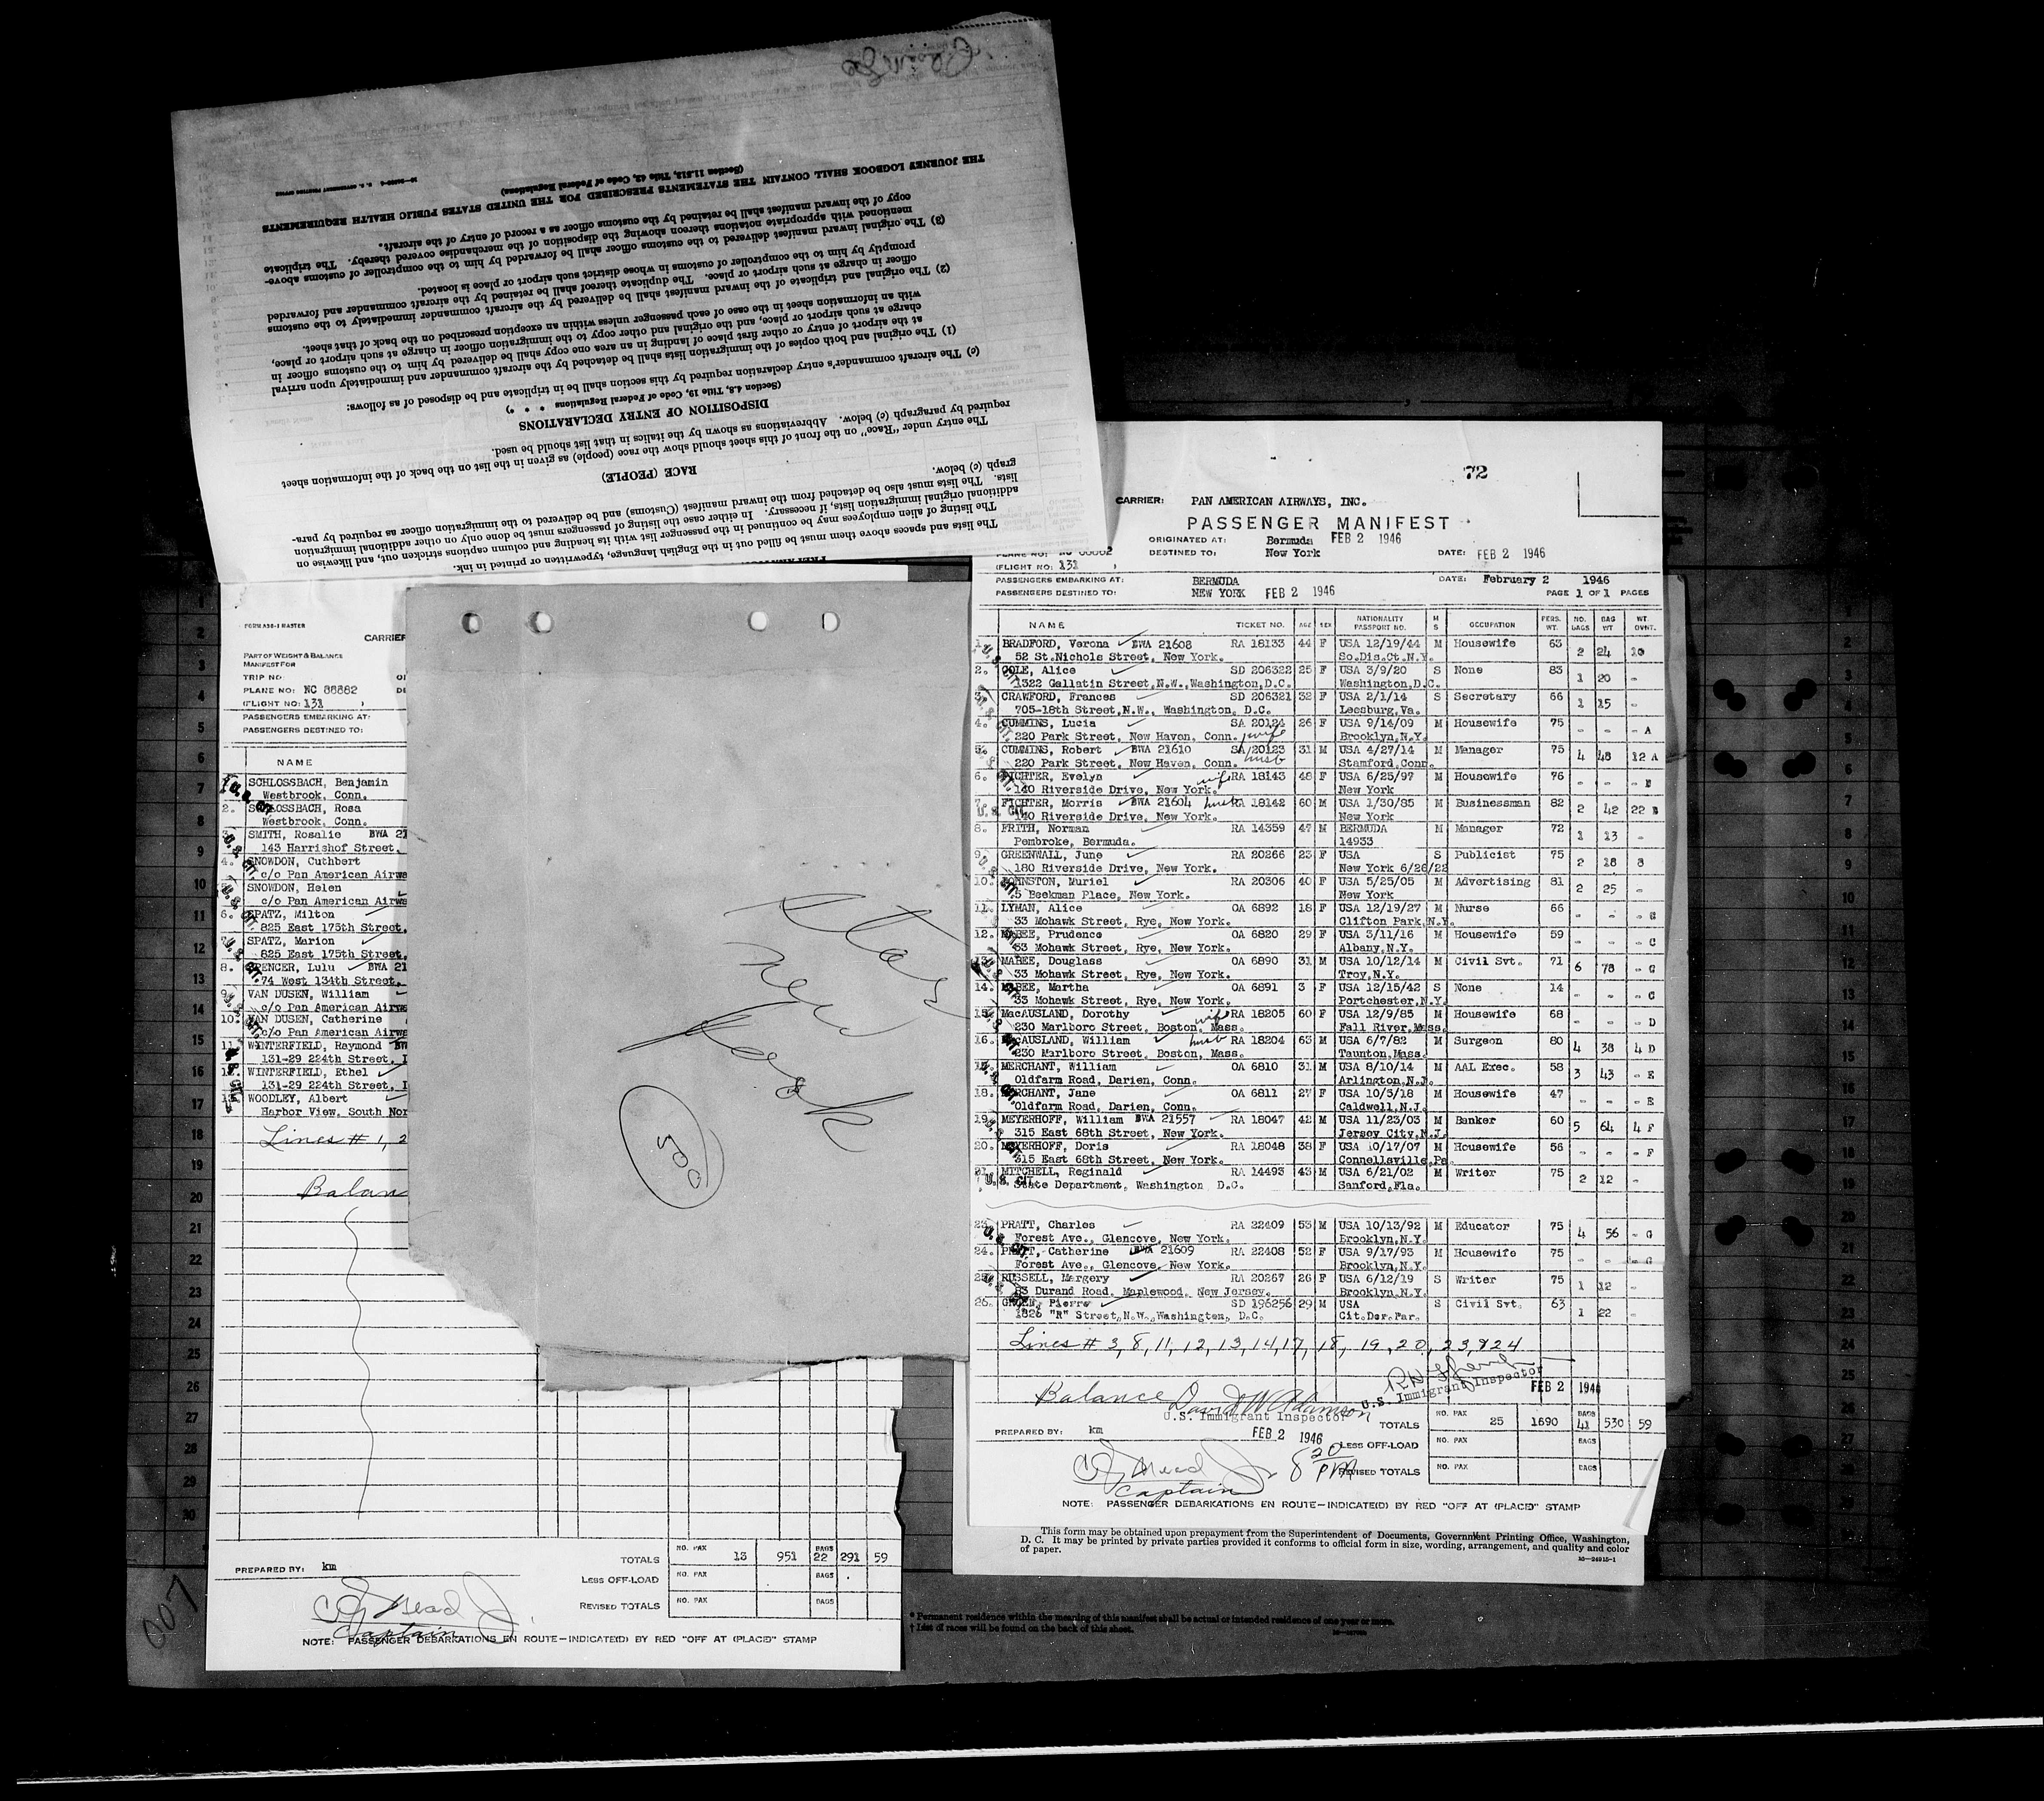 THE JOURNEY LOGBOOK SHALL CONTAIN THE STATEMENTS PRESCRIBED FOR THE UNITED STATES PUBLIC HEALTH REQUIREMENTS
(Section 11.513, Title 42, Code of Federal Regulations)
The lists and spaces above them must be filled out in the English language, typewritten or printed in ink.
The listing of alien employees may be continued in the passenger list with its heading and column captions stricken out, and likewise on
additional original immigration lists, if necessary. In either case the listing of passengers must be done only on other additional immigration
lists. The lists must also be detached from the inward manifest (Customs) and be delivered to the immigration officer as required by para-
graph (c) below.
RACE (PEOPLE)
The entry under "Race" on the front of this sheet should show the race (people) as given in the list on the back of the information sheet
required by paragraph (c) below. Abbreviations as shown by the italics in that list should be used.
DISPOSITION OF ENTRY DECLARATIONS
(Section 4.8, Title 19, Code of Federal Regulations * * *)
(c) The aircraft commander's entry declaration required by this section shall be in triplicate and be disposed of as follows:
(1) The original and both copies of the immigration lists shall be detached by the aircraft commander and immediately upon arrival
at the airport of entry or other first place of landing in an area one copy shall be delivered by him to the customs officer in
charge at such airport or place, and the original and other copy to the immigration officer in charge at such airport or place,
with an information sheet in the case of each passenger unless within an exception prescribed on the back of that sheet.
(2) The original and triplicate of the inward manifest shall be delivered by the aircraft commander immediately to the customs
officer in charge at such airport or place. The duplicate thereof shall be retained by the aircraft commander and forwarded
promptly by him to the comptroller of customs in whose district such airport or place is located.
(3) The original inward manifest delivered to the customs officer shall be forwarded by him to the comptroller of customs above-
mentioned with appropriate notations thereon showing the disposition of the merchandise covered thereby. The triplicate
copy of the inward manifest shall be retained by the customs officer as a record of entry of the aircraft.
FORM A38-1 MASTER
CARRIER
PART OF WEIGHT & BALANCE
MANIFEST FOR
TRIP NO:
PLANE NO: NC 88882
(FLIGHT NO: 131 )
PASSENGERS EMBARKING AT:
PASSENGERS DESTINED TO:
NAME
SCHLOSSBACH, Benjamin
Westbrook, Conn.
2. SCHLOSSBACH, Rosa
Westbrook, Conn.
3. SMITH, Rosalie BWA 21
143 Harrishof Street,
4. SNOWDON, Cuthbert
c/o Pan American Airwa
SNOWDON, Helen
c/o Pan American Airwa
6. SPATZ, Milton
825 East 175th Street,
SPATZ, Marion
825 East 175th Street,
8. SPENCER, Lulu BWA 21
74 West 134th Street,
9. VAN DUSEN, William
c/o Pan American Airwa
10. VAN DUSEN, Catherine
c/o Pan American Airwa
11. WINTERFIELD, Raymond BW
131-29 224th Street, I
WINTERFIELD, Ethel
131-29 224th Street, I
13. WOODLEY, Albert
Harbor View, South Nor
Lines # 1, 2
Balan
PREPARED BY: km
TOTALS NO. PAX 13 951 BAGS 22 291 59
LESS OFF-LOAD NO. PAX BAGS
REVISED TOTALS NO. PAX BAGS
C J Mead Jr
Captain
NOTE: PASSENGER DEBARKATIONS EN ROUTE—INDICATE(D) BY RED "OFF AT (PLACE)" STAMP
007
New
York
500
72
CARRIER: PAN AMERICAN AIRWAYS, INC.
PASSENGER MANIFEST
ORIGINATED AT: Bermuda FEB 2 1946
PLANE NO: NC 88882 DESTINED TO: New York DATE: FEB 2 1946
(FLIGHT NO: 131 )
PASSENGERS EMBARKING AT: BERMUDA DATE: February 2 1946
PASSENGERS DESTINED TO: NEW YORK FEB 2 1946 PAGE 1 OF 1 PAGES
NAME TICKET NO. AGE SEX NATIONALITY PASSPORT NO. M S OCCUPATION PERS. WT. NO. BAGS BAG WT WT. OVWT.
1. BRADFORD, Verona BWA 21608 RA 18133 44 F USA 12/19/44 M Housewife 63 2 24 10
52 St.Nichols Street, New York. So.Dis.Ct.N.Y.
2. COLE, Alice SD 206322 25 F USA 3/9/20 S None 83 1 20 -
1322 Gallatin Street,N.W.,Washington,D.C. Washington,D.C.
3. CRAWFORD, Frances SD 206321 32 F USA 2/1/14 S Secretary 66 1 15 -
705-18th Street,N.W., Washington, D.C. Leesburg,Va.
4. CUMMINS, Lucia SA 20124 26 F USA 9/14/09 M Housewife 75 - - - A
220 Park Street, New Haven, Conn. wife Brooklyn,N.Y.
5. CUMMINS, Robert BWA 21610 SA/20123 31 M USA 4/27/14 M Manager 75 4 48 12 A
220 Park Street, New Haven, Conn. husb Stamford,Conn.
6. FICHTER, Evelyn wife RA 18143 48 F USA 6/25/97 M Housewife 76 - - - B
140 Riverside Drive, New York. New York
7. FICHTER, Morris BWA 21604 husb RA 18142 60 M USA 1/30/85 M Businessman 82 2 42 22 B
140 Riverside Drive, New York. New York
8. FRITH, Norman RA 14359 47 M BERMUDA M Manager 72 1 13 -
Pembroke, Bermuda. 14933
9. GREENWALL, June RA 20266 23 F USA S Publicist 75 2 18 8
180 Riverside Drive, New York. New York 6/26/22
10. JOHNSTON, Muriel RA 20306 40 F USA 5/25/05 M Advertising 81 2 25 -
5 Beekman Place, New York. New York
11. LYMAN, Alice OA 6892 18 F USA 12/19/27 M Nurse 66 - - - C
33 Mohawk Street, Rye, New York. Clifton Park,N.Y.
12. MABEE, Prudence OA 6820 29 F USA 3/11/16 M Housewife 59 - - - C
33 Mohawk Street, Rye, New York. Albany,N.Y.
13. MABEE, Douglass OA 6890 31 M USA 10/12/14 M Civil Svt. 71 6 78 - C
33 Mohawk Street, Rye, New York. Troy,N.Y.
14. MABEE, Martha OA 6891 3 F USA 12/15/42 S None 14 - - - C
33 Mohawk Street, Rye, New York. Portchester,N.Y.
15. MacAUSLAND, Dorothy wife RA 18205 60 F USA 12/9/85 M Housewife 68 - - - D
230 Marlboro Street, Boston, Mass. Fall River,Mass.
16. MacAUSLAND, William husb RA 18204 63 M USA 6/7/82 M Surgeon 80 4 38 4 D
230 Marlboro Street, Boston, Mass. Taunton,Mass.
17. MERCHANT, William OA 6810 31 M USA 8/10/14 M AAL Exec. 58 3 43 - E
Oldfarm Road, Darien, Conn. Arlington,N.J.
18. MERCHANT, Jane OA 6811 27 F USA 10/5/18 M Housewife 47 - - - E
Oldfarm Road, Darien, Conn. Caldwell,N.J.
19. MEYERHOFF, William BWA 21557 RA 18047 42 M USA 11/23/03 M Banker 60 5 64 4 F
315 East 68th Street, New York. Jersey City,N.J.
20. MEYERHOFF, Doris RA 18048 38 F USA 10/17/07 M Housewife 56 - - - F
315 East 68th Street, New York. Connellsville,Pa.
21. MITCHELL, Reginald RA 14493 43 M USA 6/21/02 M Writer 75 2 12 -
State Department, Washington D.C. Sanford,Fla.
23. PRATT, Charles RA 22409 53 M USA 10/13/92 M Educator 75 4 56 - G
Forest Ave., Glencove, New York. Brooklyn,N.Y.
24. PRATT, Catherine BWA 21609 RA 22408 52 F USA 9/17/93 M Housewife 75 - - - G
Forest Ave., Glencove, New York. Brooklyn,N.Y.
25. RUSSELL, Margery RA 20267 26 F USA 6/12/19 S Writer 75 1 12 -
83 Durand Road, Maplewood, New Jersey. Brooklyn,N.Y.
26. Pierre SD 196256 29 M USA S Civil Svt. 63 1 22 -
1826 "R" Street,N.W.,Washington, D.C. Cit.Der.Par.
Lines # 3, 8, 11, 12, 13, 14, 17, 18, 19, 20, 23, & 24
U.S. Immigrant Inspector
FEB 2 1946
Balance David W Adamson
U.S. Immigrant Inspector
FEB 2 1946
TOTALS NO. PAX 25 1690 BAGS 41 530 59
PREPARED BY: km
LESS OFF-LOAD NO. PAX BAGS
REVISED TOTALS NO. PAX BAGS
C J Mead Jr
Captain
8 20 PM
NOTE: PASSENGER DEBARKATIONS EN ROUTE—INDICATE(D) BY RED "OFF AT (PLACE)" STAMP
This form may be obtained upon prepayment from the Superintendent of Documents, Government Printing Office, Washington,
D. C. It may be printed by private parties provided it conforms to official form in size, wording, arrangement, and quality and color
of paper.
16—24915-1
* Permanent residence within the meaning of this manifest shall be actual or intended residence of one year or more.
† List of races will be found on the back of this sheet.